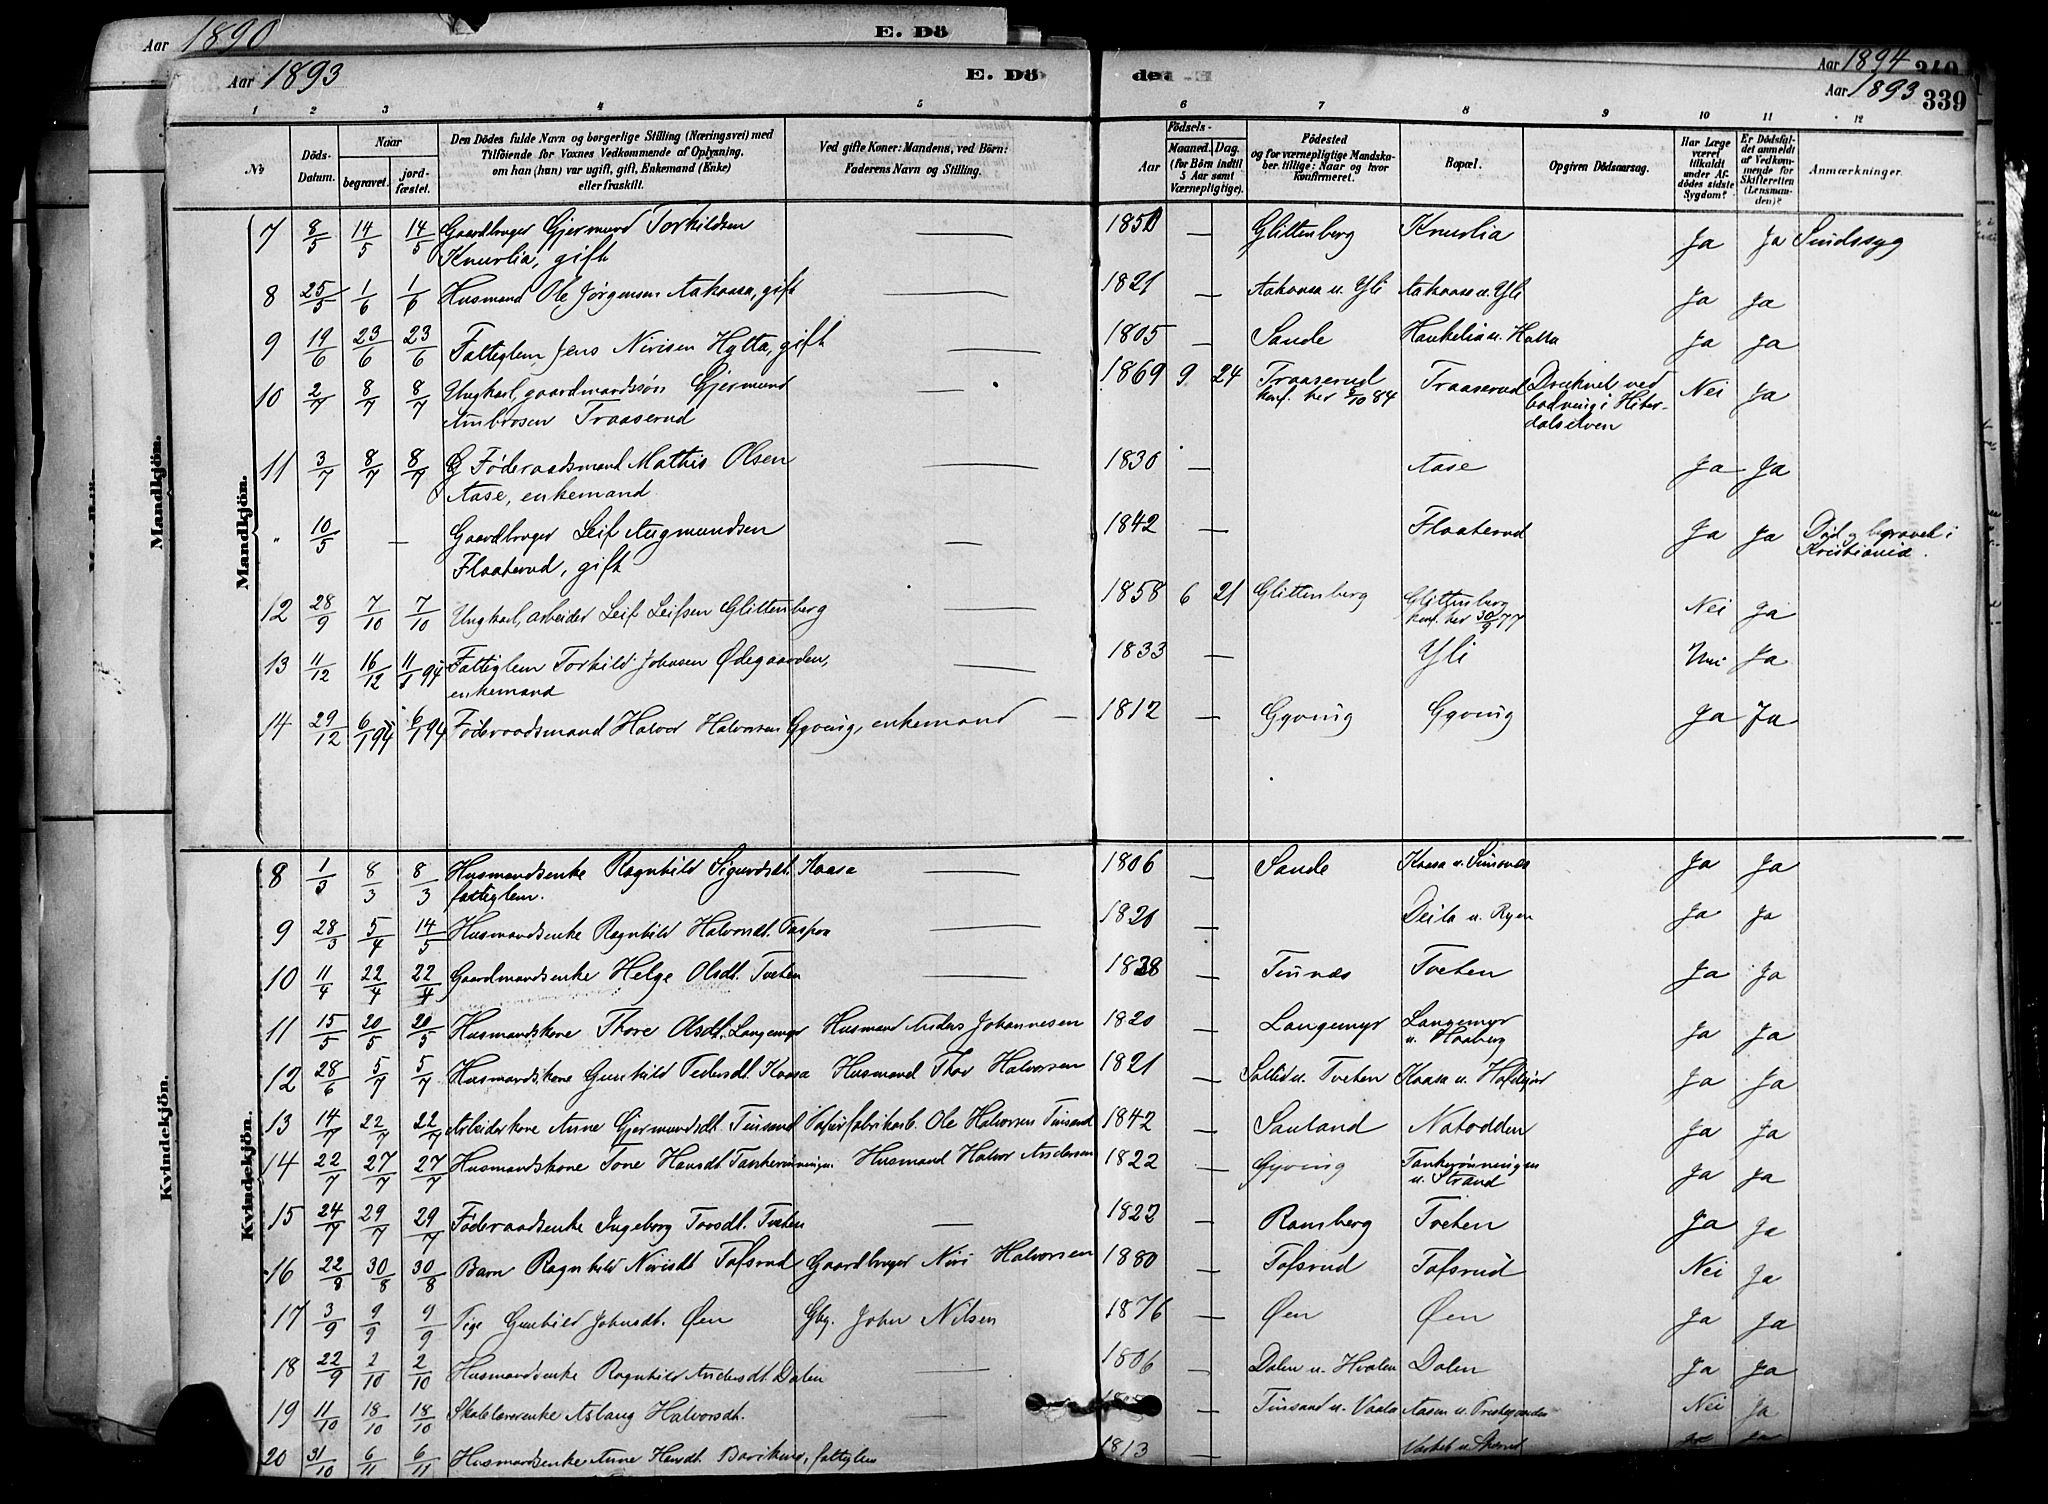 Aar 1890 E. Dö
Aar 1894 340
Aar 1893 E. Dö de Aar 1893 339
1 2 3 4 5 6 7 8 9 10 11 12
No
Döds-Datum.
Naar
begravet.
jord-fæstet.
Den Dödes fulde Navn og borgerlige Stilling (Næringsvei) med
Tilföiende for Voxnes Vedkommende af Oplysning,
om han (hun) var ugift, gift, Enkemand (Enke)
eller fraskilt.
Ved gifte Koner: Mandens, ved Börn:
Faderens Navn og Stilling.
Födsels-
Aar
Maaned. Dag.
(for Börn indtil
5 Aar samt
Værnepligtige).
Födested
og for værnepligtige Mandska-
ber tillige: Naar og hvor
konfirmeret.
Bopæl.
Opgiven Dödsaarsag.
Har Læge
været
tilkaldt
under Af-
dödes sidste
Sygdom?
Er Dödsfal-
det anmeldt
af Vedkom-
mende for
Skifteretten
(Lensman-
den)?
Anmærkninger.
Mandkjön.
Mandkjön.
7 8/5 14/5 14/5 Gaardbruger Gjermund Torkildsen — 1850 — Glittenberg Knurlia Ja Ja Sindssyg
Knurlia, gift
8 25/5 1/6 1/6 Husmand Ole Jørgensen Aakaasa, gift — 1821 — Aakaasa u. Yli Aakaasa u. Yli Ja Ja
9 19/6 23/6 23/6 Fattiglem Jens Nirisen Hytta, gift — 1805 — Sande Ja Ja
10 2/7 8/7 8/7 Ungkarl, gaardmandssøn Gjermund — 1869 9 24 Traaserud Traaserud Druknet ved Nei Ja
Ambrosen Traaserud konf. her 5/10 84 badning i Hiter-
dalselven
11 3/7 8/7 8/7 Føderaadsmand Mathis Olsen — 1830 — Aase Ja Ja
Aase, enkemand
" 10/5 — Gaardbruger Leif Augmundsen — 1842 — Flaaterud Ja Ja Død og begravet i
Flaaterud, gift Kristiania.
12 28/9 7/10 7/10 Ungkarl, arbeider Leif Leifsen Glittenberg — 1858 6 21 Glittenberg Glittenberg Nei Ja
konf. her 30/9 77
13 11/12 16/12 11/1 94 Fattiglem Torkild Johnsen Ødegaarden, — 1833 — Yli Nei Ja
enkemand
14 29/12 6/1 94 6/1 94 Føderaadsmand Halvor Halvorsen Gyving, enkemand — 1812 — Gyving Gyving Ja Ja
Kvindekjön.
Kvindekjön.
8 1/3 8/3 8/3 Husmandsenke Ragnhild Sigurdsdt. Kaasa — 1806 — Sande Kaasa u. Ja Ja
fattiglem.
9 28/3 5/4 14/5 Husmandsenke Ragnhild Halvorsdt. — 1820 — u. Ryen Ja Ja
10 11/4 22/4 22/4 Gaardmandsenke Helge Olsdt. Tveten — 1828 — Tinnæs Tveten Ja Ja
11 15/5 20/5 20/5 Husmandskone Thore Olsdt. Langemyr Husmand Anders Johannesen 1820 — Langemyr Langemyr Ja Ja
u. Haaberg
12 28/6 5/7 5/7 Husmandskone Gunhild Pedersdt. Kaasa Husmand Thov Halvorsen 1821 — u. Tveten Kaasa u. Ja Ja
13 14/7 22/7 22/7 Arbeiderkone Anne Gjermundsdt. Tinsand Papirfabrikarb. Ole Halvorsen Tinsand 1842 — Sauland Notodden Ja Ja
14 22/7 27/7 27/7 Husmandskone Tone Hansdt. Tankerønningen Husmand Halvor Andersen 1822 — Gyving Tankerønningen Ja Ja
u. Strand
15 24/7 29/7 29/7 Føderaadsenke Ingeborg Torsdt. Tveten — 1822 — Ramberg Tveten Ja Ja
16 22/8 30/8 30/8 Barn Ragnhild Nirisdt. Tofsrud Gaardbruger Niri Halvorsen 1880 — Tofsrud Tofsrud Nei Ja
17 3/9 9/9 9/9 Pige Gunhild Johnsdt. Øen Gbg. John Nilsen 1876 — Øen Øen Ja Ja
18 22/9 2/10 2/10 Husmandsenke Ragnhild Andersdt. Dalen — 1806 — Dalen u. Hvalen Dalen Ja Ja
19 11/10 18/10 18/10 Skolelærerenke Aslaug Halvorsdt. — Tinsand u. Vaala Aasen u. Nei Ja
20 31/10 6/11 6/11 Husmandsenke Anne Hansdt. fattiglem 1813 — Ja Ja